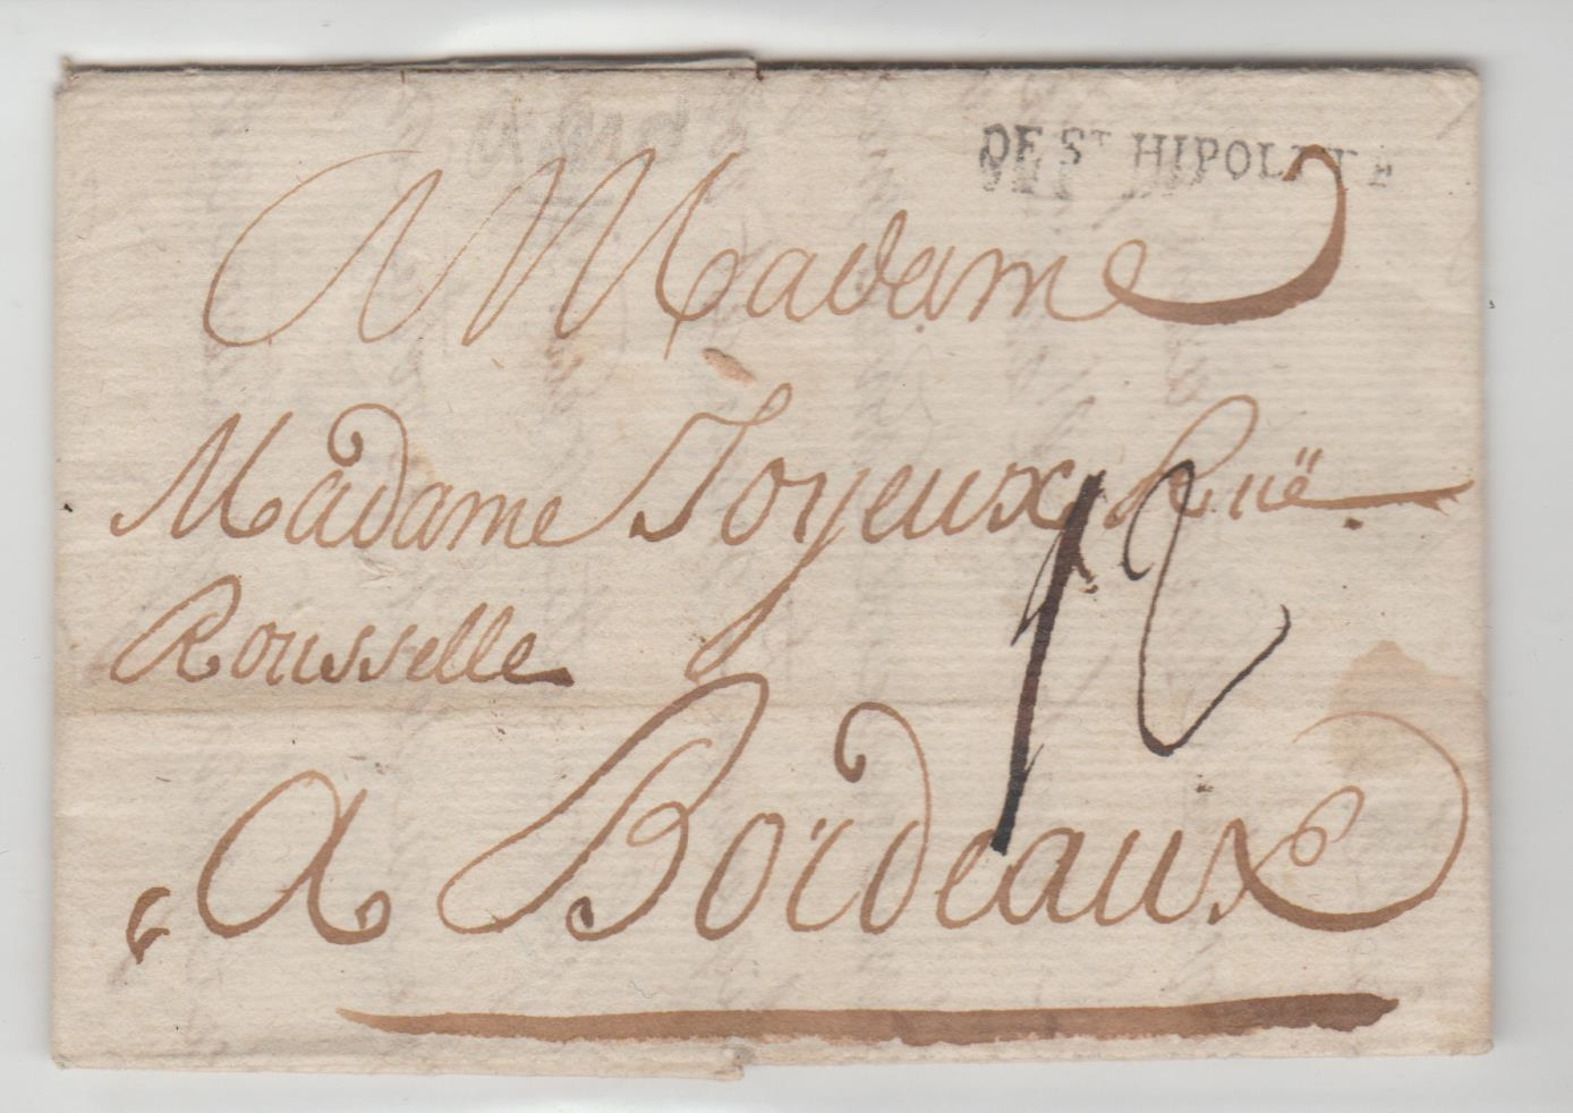 DE ST HIPOLITE
A Madame
Madame Joyeux Ruë
Rousselle
12
A Bordeaux